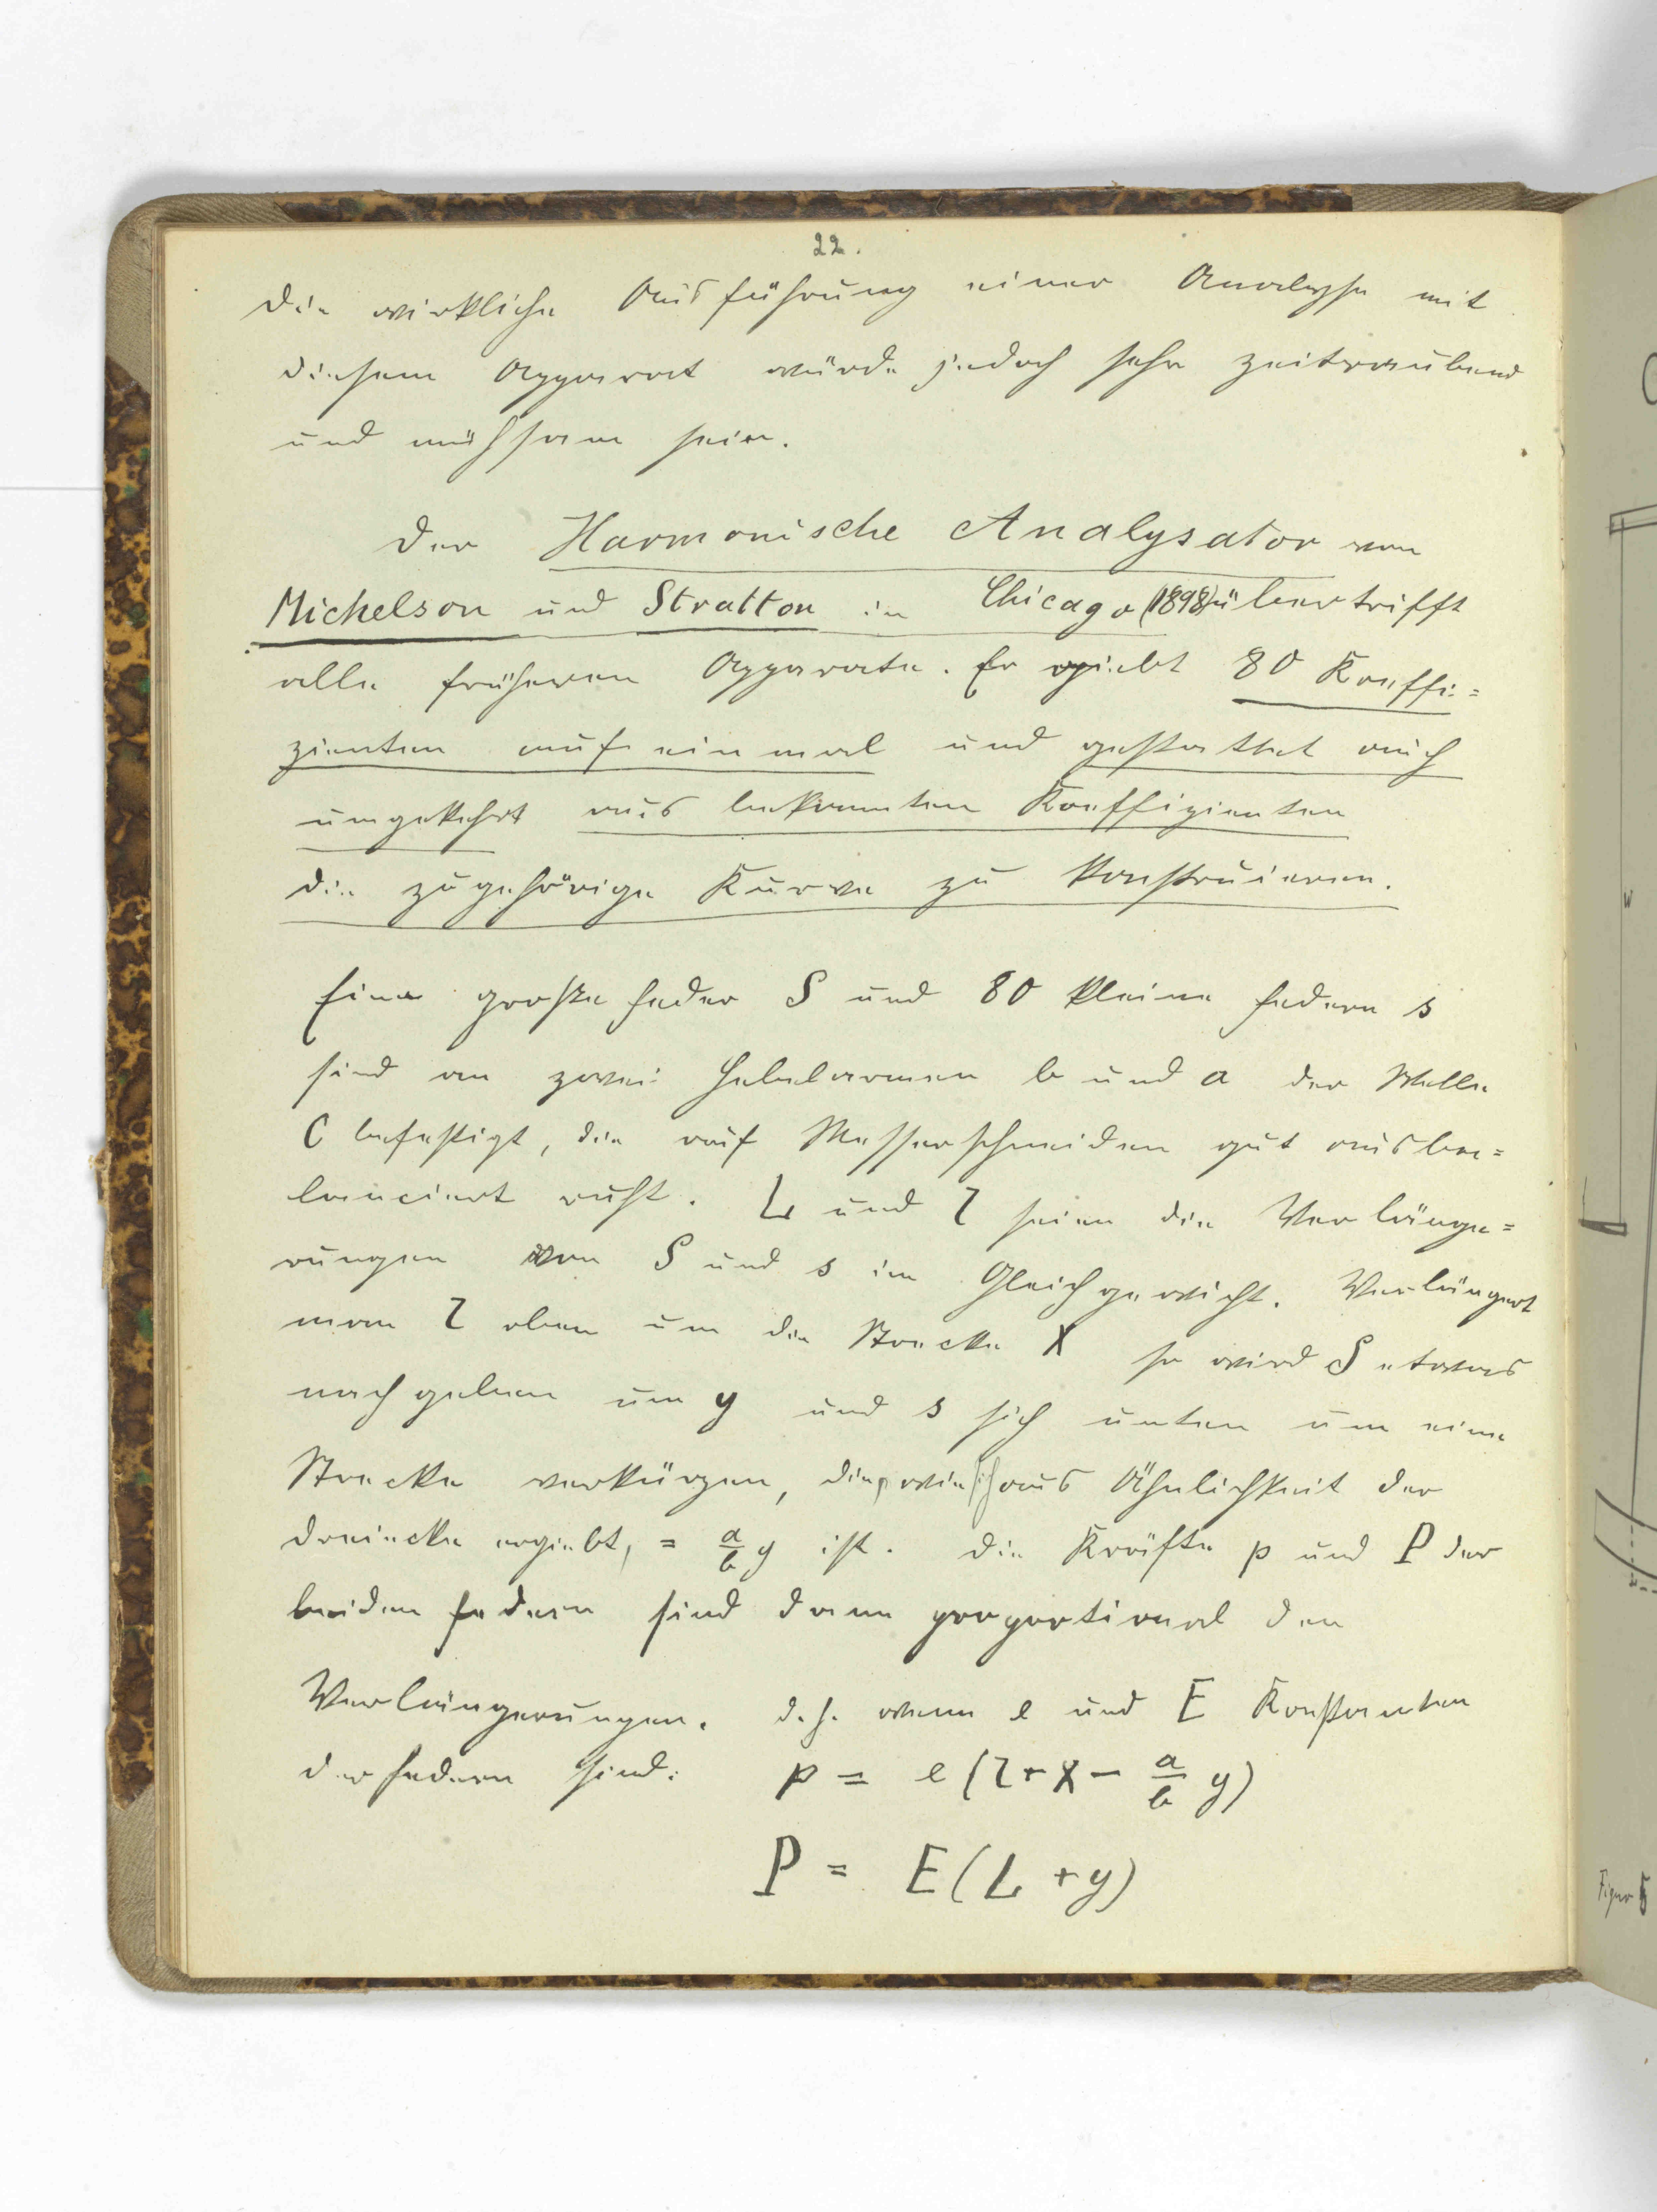 22.
Die wirkliche Ausführung einer Analyse mit
diesem Apparat würde jedoch sehr zeitraubend
und mühsam sein.
Der Harmonische Analysator von
Michelson und Stratton in Chicago (1898) übertrifft
alle früheren Apparate. Er giebt 80 Koeffi=
zienten auf einmal und gestattet auch
umgekehrt aus bekannten Koeffizienten
die zugehörige Kurve zu konstruieren.
Eine große Feder S und 80 kleine Federn s
sind an zwei Hebelarmen b und a der Welle
C befestigt, die auf Messerschneiden gut ausba=
lanciert ruht. L und l seien die Verlänge=
rungen von S und s im Gleichgewicht. Verlängert
man l oben um die Strecke x so wird S etwas
nachgeben um y und s sich unten um eine
Strecke verkürzen, die, wie sich aus Ähnlichkeit der
Dreiecke ergiebt, = a/b y ist. Die Kräfte p und P der
beiden Federn sind dann proportional den
Verlängerungen. d.h. wenn e und E Konstanten
der Federn sind: p = e (l + x − a/b y)
P = E (L + y)
W
Figur 5